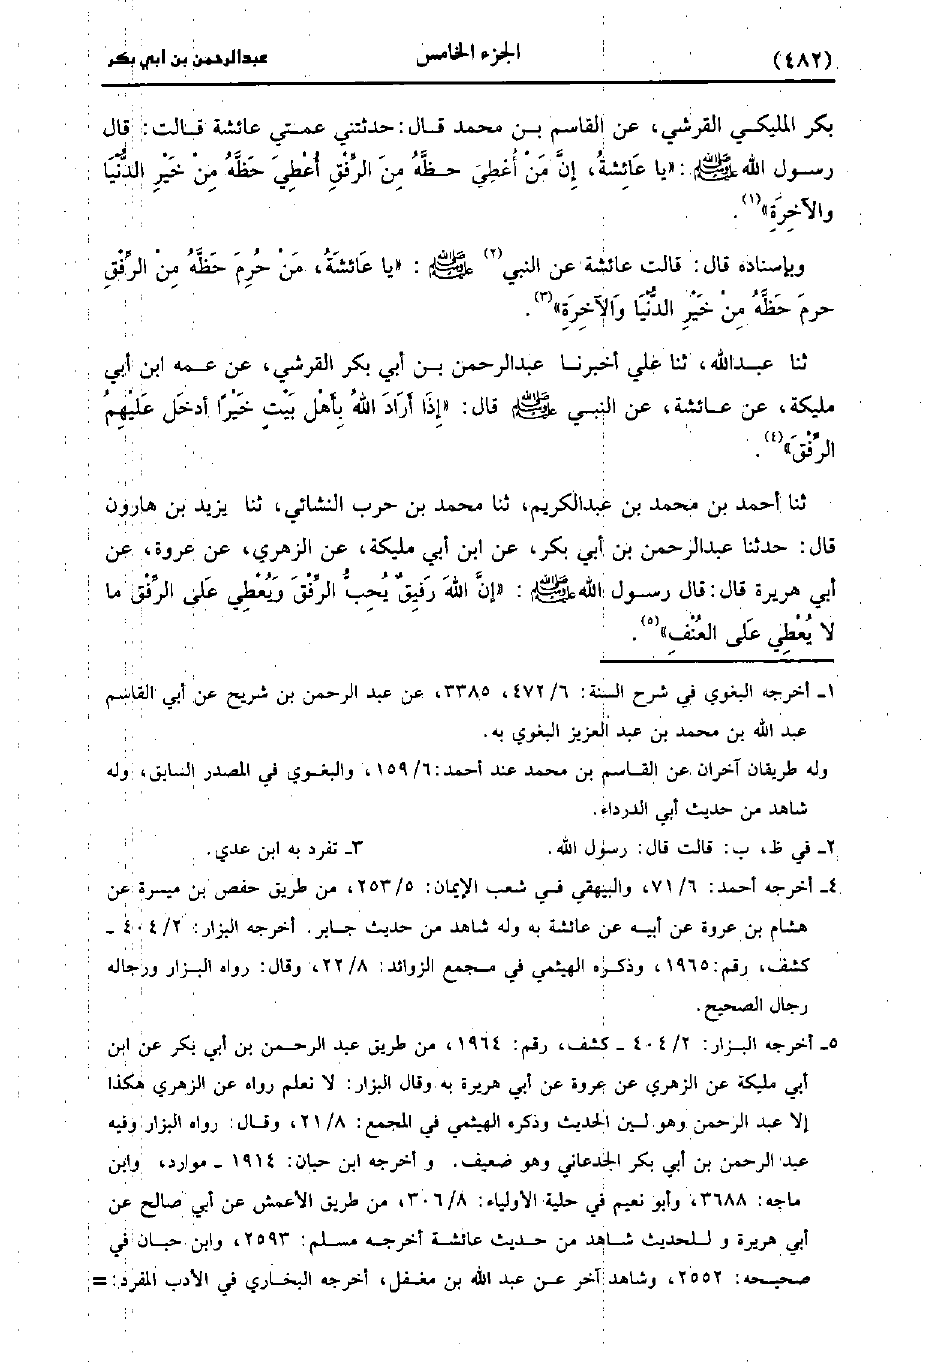 (٤٨٢) الجزء الخامس عبدالرحمن بن ابي بكر
بكر المليكي القرشي، عن القاسم بن محمد قال: حدثتني عمتي عائشة قالت: قال
رسول الله ﷺ: «يا عَائِشةُ، إِنَّ مَنْ أُعْطِيَ حظَّهُ مِنَ الرِّفْقِ أُعْطِيَ حَظَّهُ مِنْ خَيْرِ الدُّنْيَا
والآخِرَةِ»(١).
وبإسناده قال: قالت عائشة عن النبي(٢) ﷺ : «يا عَائشَةُ، مَنْ حُرِمَ حَظَّهُ مِنْ الرِّفْقِ
حرِمَ حَظَّهُ مِنْ خَيْرِ الدُّنْيَا وَالآخِرَةِ»(٣).
ثنا عبدالله، ثنا علي أخبرنا عبدالرحمن بن أبي بكر القرشي، عن عمه ابن أبي
مليكة، عن عائشة، عن النبي ﷺ قال: «إِذَا أَرَادَ اللهُ بِأَهْلِ بَيْتٍ خَيْرًا أدخَلَ عَلَيْهِمُ
الرِّفْقَ»(٤).
ثنا أحمد بن محمد بن عبدالكريم، ثنا محمد بن حرب النشائي، ثنا يزيد بن هارون
قال: حدثنا عبدالرحمن بن أبي بكر، عن ابن أبي مليكة، عن الزهري، عن عروة، عن
أبي هريرة قال: قال رسول الله ﷺ : «إِنَّ اللهَ رَفِيقٌ يُحِبُّ الرِّفْقَ وَيُعْطِي عَلَى الرِّفْقِ ما
لا يُعْطِي عَلَى العُنْفِ»(٥).
١ـ أخرجه البغوي في شرح السنة: ٦/ ٤٧٢، ٣٣٨٥، عن عبد الرحمن بن شريح عن أبي القاسم
عبد الله بن محمد بن عبد العزيز البغوي به.
وله طريقان آخران عن القاسم بن محمد عند أحمد: ٦/ ١٥٩، والبغوي في المصدر السابق، وله
شاهد من حديث أبي الدرداء.
٢ـ في ظ، ب: قالت قال: رسول الله. ٣ـ تفرد به ابن عدي.
٤ـ أخرجه أحمد: ٦/ ٧١، والبيهقي في شعب الإيمان: ٥/ ٢٥٣، من طريق حفص بن ميسرة عن
هشام بن عروة عن أبيه عن عائشة به وله شاهد من حديث جابر. أخرجه البزار: ٢/ ٤٠٤ ـ
كشف، رقم: ١٩٦٥، وذكره الهيثمي في مجمع الزوائد: ٨/ ٢٢، وقال: رواه البزار ورجاله
رجال الصحيح.
٥ـ أخرجه البزار: ٢/ ٤٠٤ ـ كشف، رقم: ١٩٦٤، من طريق عبد الرحمن بن أبي بكر عن ابن
أبي مليكة عن الزهري عن عروة عن أبي هريرة به وقال البزار: لا نعلم رواه عن الزهري هكذا
إلا عبد الرحمن وهو لين الحديث وذكره الهيثمي في المجمع: ٨/ ٢١، وقال: رواه البزار وفيه
عبد الرحمن بن أبي بكر الجدعاني وهو ضعيف. و أخرجه ابن حبان: ١٩١٤ ـ موارد، وابن
ماجه: ٣٦٨٨، وأبو نعيم في حلية الأولياء: ٨/ ٣٠٦، من طريق الأعمش عن أبي صالح عن
أبي هريرة و للحديث شاهد من حديث عائشة أخرجه مسلم: ٢٥٩٣، وابن حبان في
صحيحه: ٢٥٥٢، وشاهد آخر عن عبد الله بن مغفل، أخرجه البخاري في الأدب المفرد: =